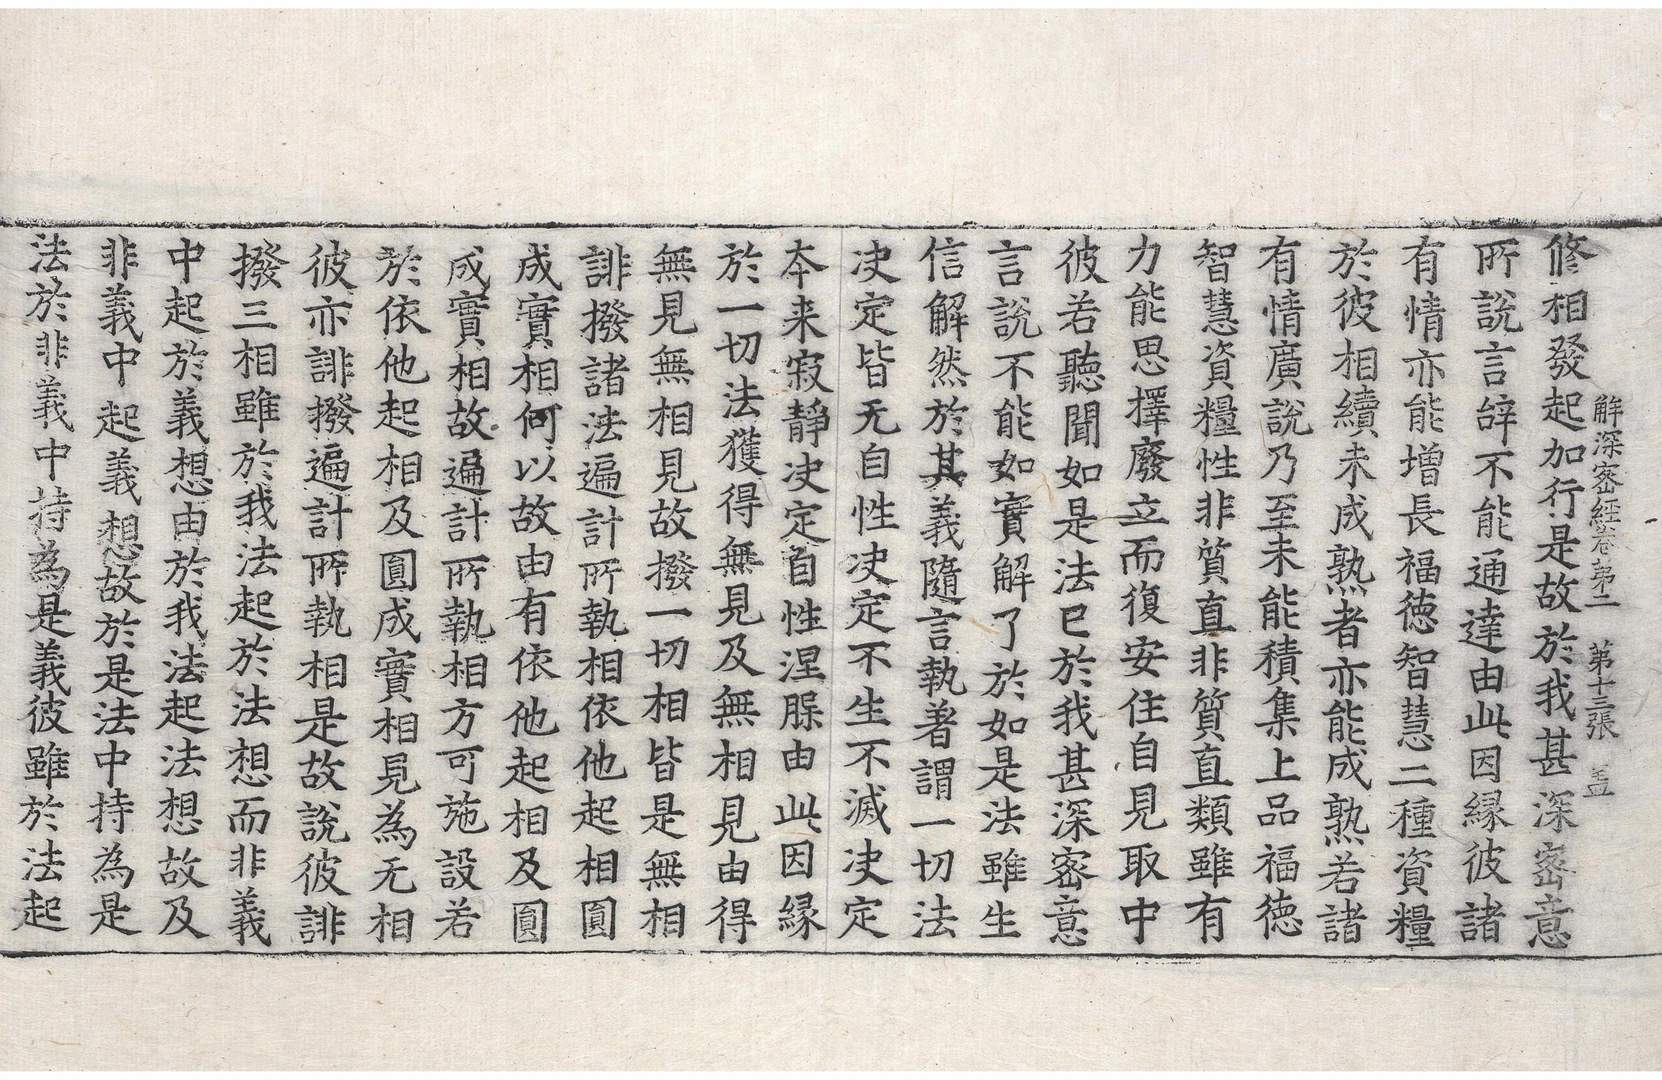 解深密經卷第二　第十三張　盖
修相發起加行是故於我甚深密意
所說言辝不能通達由此因縁彼諸
有情亦能增長福德智慧二種資糧
於彼相續未成熟者亦能成熟若諸
有情廣說乃至未能積集上品福德
智慧資糧性非質直非質直類雖有
力能思擇廢立而復安住自見取中
彼若聽聞如是法已於我甚深密意
言說不能如實解了於如是法雖生
信解然於其義隨言執著謂一切法
决定皆无自性决定不生不滅决定
本来寂靜决定自性涅槃由此因縁
於一切法獲得無見及無相見由得
無見無相見故撥一切相皆是無相
誹撥諸法遍計所執相依他起相圓
成實相何以故由有依他起相及圓
成實相故遍計所執相方可施設若
於依他起相及圓成實相見為无相
彼亦誹撥遍計所執相是故說彼誹
撥三相雖於我法起於法想而非義
中起於義想由於我法起法想故及
非義中起義想故於是法中持為是
法於非義中持為是義彼雖於法起